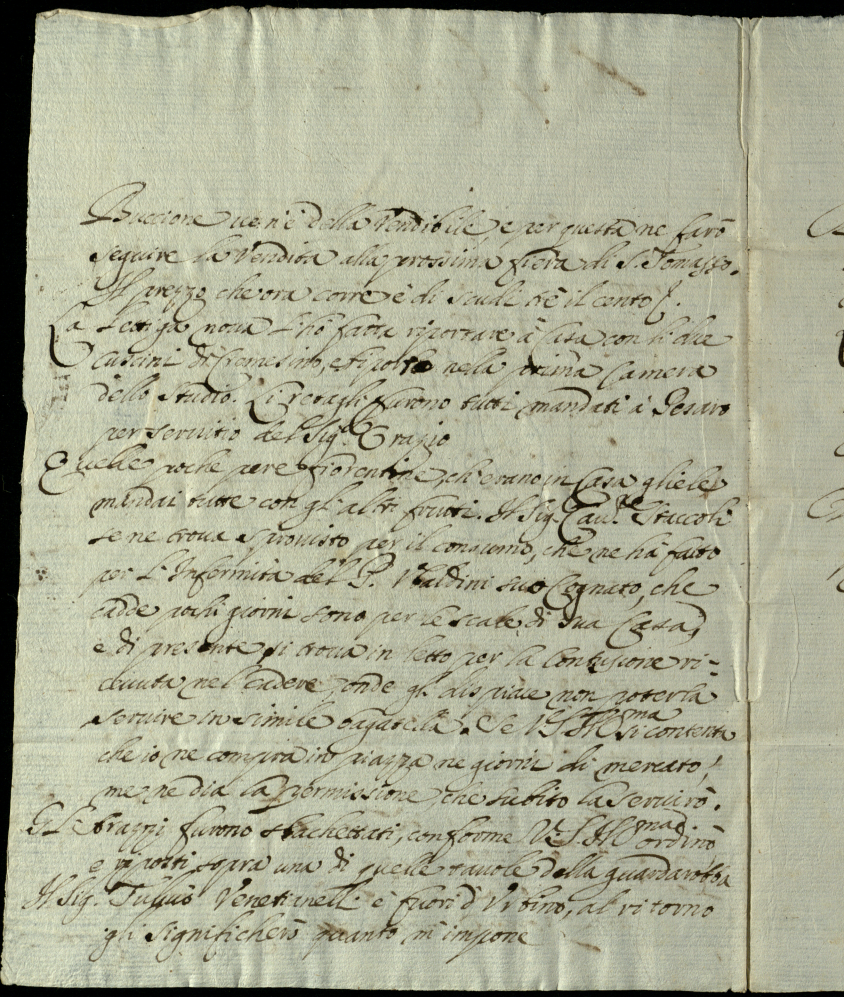 Buccione ve n'è della vendibile, e per questa ne farò
seguire la vendita alla prossima fiera di S. Tomasso.
Il prezzo che ora corre è di scudi trè il cento
La lettiga nova l'hò fatta riportare à Casa con li due
cuscini di Cremesino, e riposta nella prima Camera
dello studio. Li furono tutti mandati à Pesaro
per servitio del Sig.r Orazio
Quelle poche pere fiorentine, ch'erano in Casa gliele
mandai tutte con gl'altri frutti. Il Sig. Cav.re Staccoli
se ne trova sprovisto per il consumo, che ne hà fatto
per l'Infermità del P. Vbaldini suo Cognato, che
cadde pochi giorni sono per le scale di sua Casa,
e di presente si trova in letto per la Contusione ri=
cevuta nel cadere, onde gli dispiace non poterla
servire in simile bagatella. Se V.S. Ill.ma si contenta
che io ne compra in piazza ne giorni di mercato,
me ne dia la permissione, che subito la servirò.
Gl'Arazzi furono sbachettati, conforme V.S. Ill.ma ordinò
e riposti sopra una di quelle tavole della guardarobba
Il Sig. Tullio Venetianelli è fuori d'Vrbino, al ritorno
gli significherò quanto m'impone